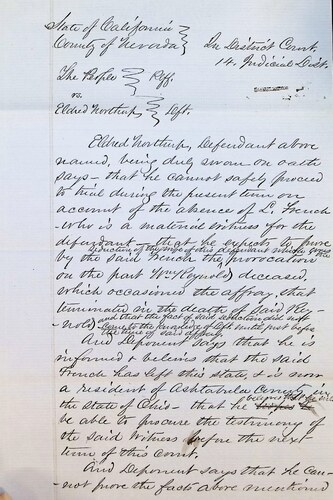 State of California
County of Nevada
In District Court,
14. Judicial Dist.
The People Plff.
vs.
Eldred Northup, Deft.
Eldred Northup, Defendant above
named, being duly sworn on oath
says – that he cannot safely proceed
to trial during the present term on
account of the absence of L. French
– who is a material witness for the
defendant – that he expects to prove
seduction of the wife of this
by the said French the provocation
on the part Wm Reynold deceased,
which occasioned the affray, that
terminated in the death of said Rey-
nold, and that the fact of said seduction
came to the knowledge of deft until just before
the time of said affray.
And Deponent says that he is
informed & believes that the said
French has left this state, & is now
a resident of Ashtabula County in
the State of Ohio – that he believes that he will
be able to procure the testimony of
the said witness before the next
term of this Court.
And Deponent says that he can-
not prove the facts above mentioned